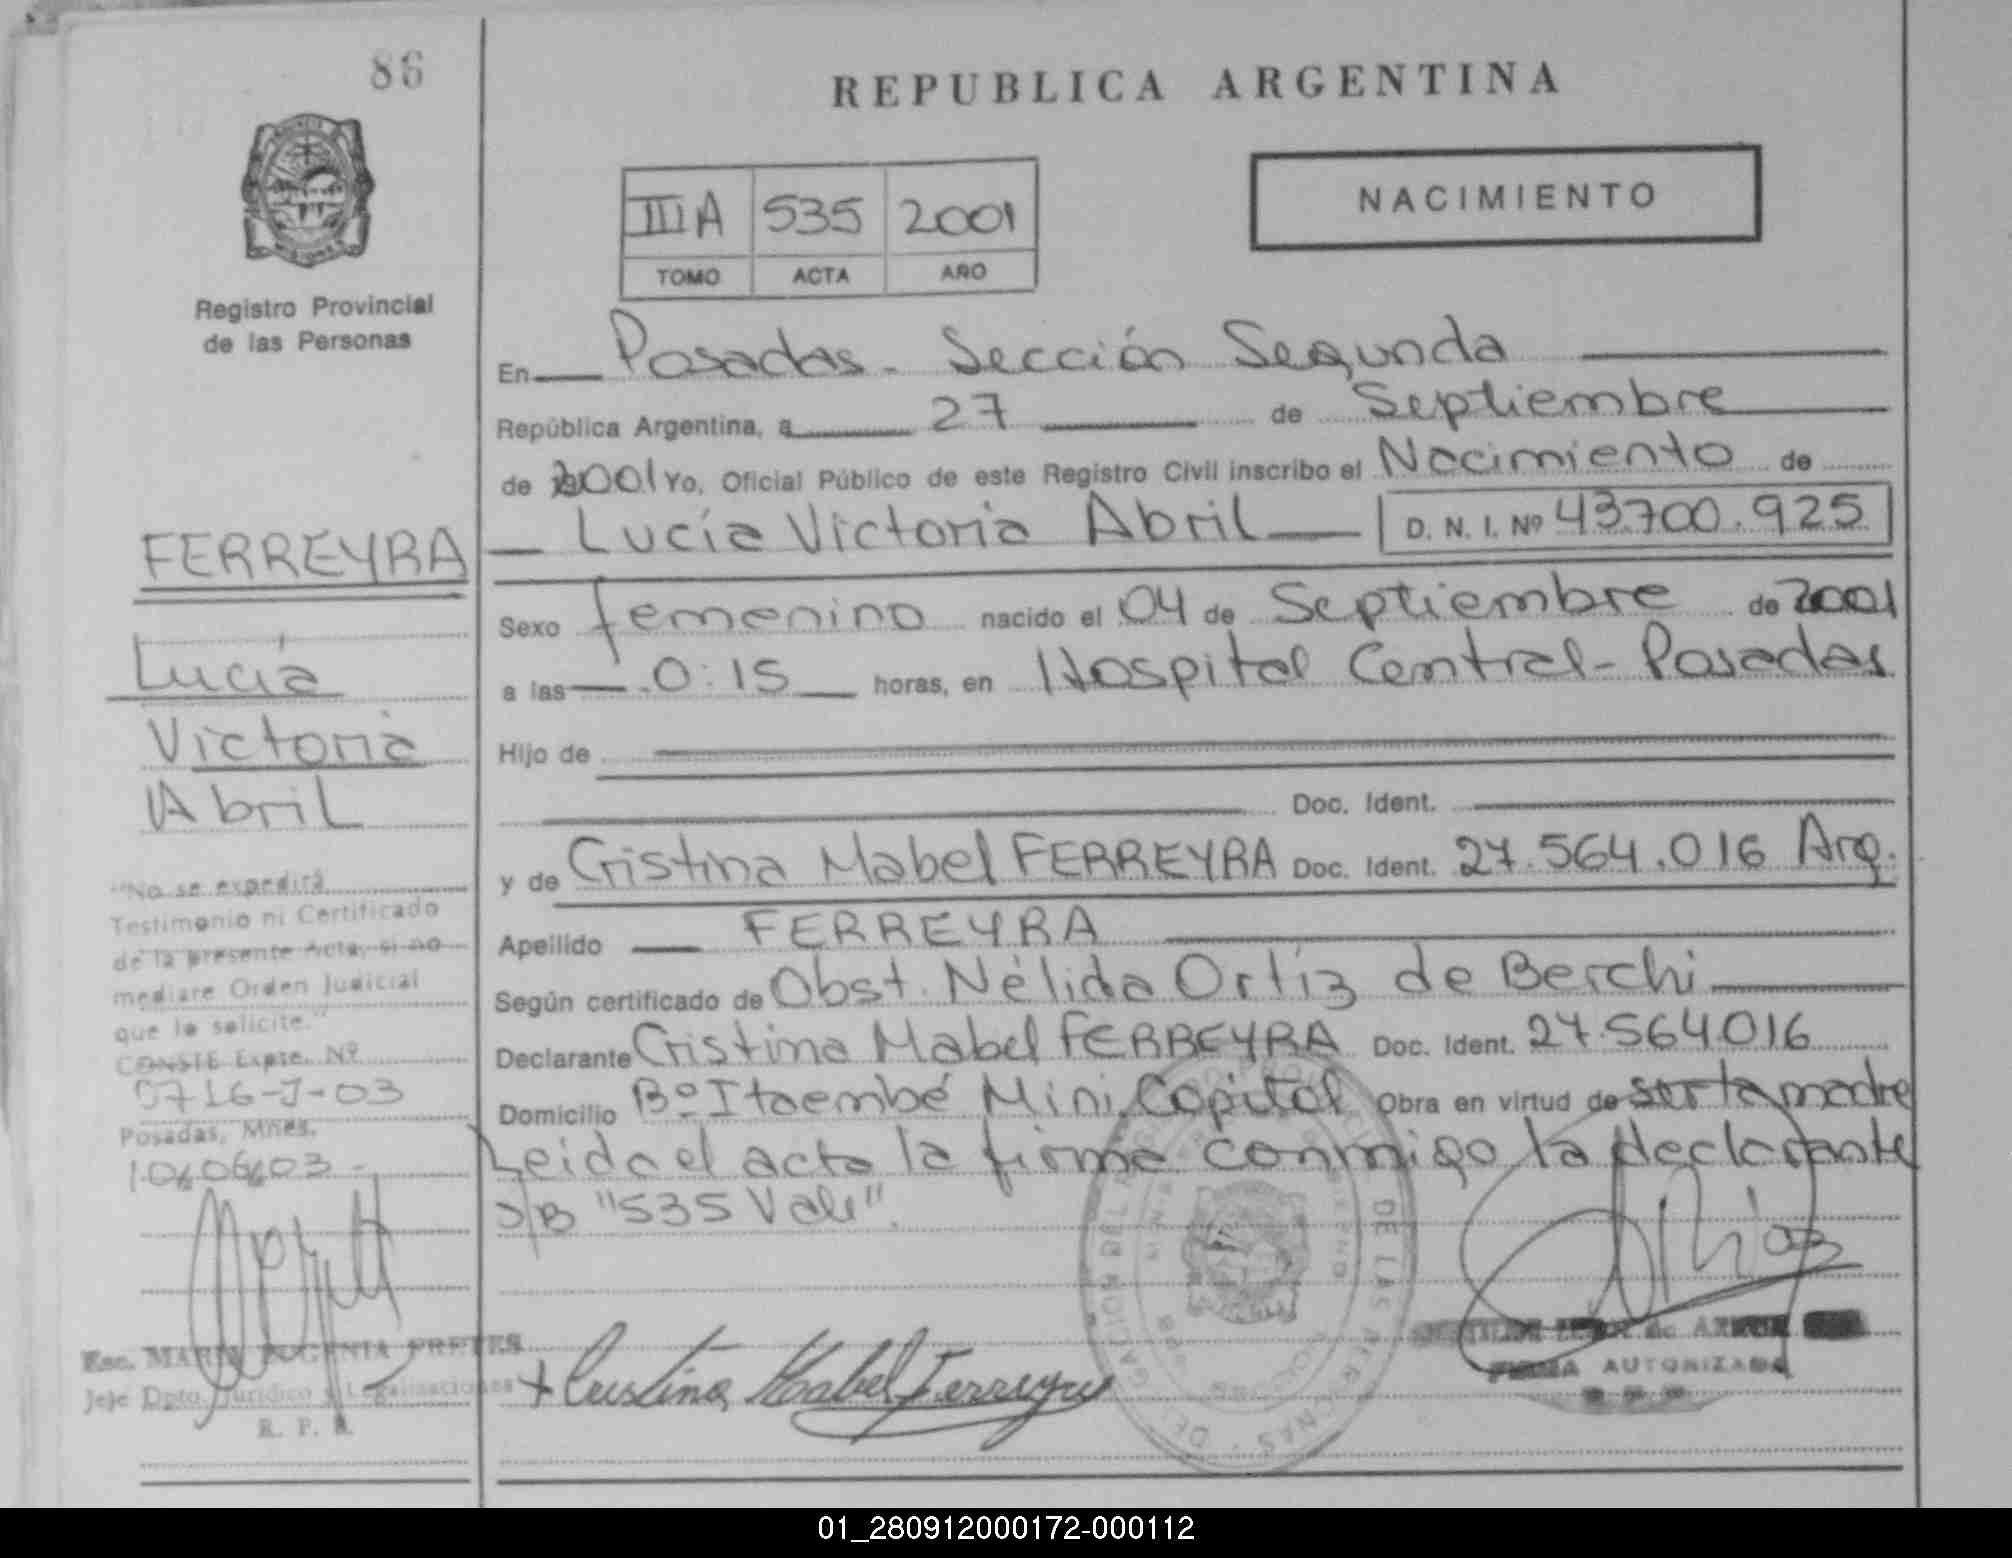 86
REPUBLICA ARGENTINA
NACIMIENTO
IIIA 535 2001
TOMO ACTA AÑO
Registro Provincial
de las Personas
En Posadas - Sección Segunda
República Argentina, a 27 de Septiembre
de 2001 Yo, Oficial Público de este Registro Civil inscribo el Nacimiento de
Lucía Victoria Abril D. N. I. Nº 43.700.925
Sexo femenino nacido el 04 de Septiembre de 2001
a las 0:15 horas, en Hospital Central - Posadas
Hijo de
Doc. Ident.
y de Cristina Mabel FERREYRA Doc. Ident. 27.564.016 Arg.
Apellido FERREYRA
Según certificado de Obst. Nélida Ortíz de Berchi
Declarante Cristina Mabel FERREYRA Doc. Ident. 27.564016
Domicilio Bº Itaembé Mini, Capital Obra en virtud de ser la madre
Leida el acta la firma conmigo la declarante
S/B "535 Vale".
FERREYRA
Lucía
Victoria
Abril
"No se expedirá
Testimonio ni Certificado
de la presente Acta, si no
mediare Orden Judicial
que lo solicite."
CONSTE Expte. Nº
5716-J-03
Posadas, Mnes.
10/06/03-
Esc. MARIA EUGENIA PRETES
Jefe Dpto. Jurídico y Legalizaciones
R. P. P.
+ Cristina Mabel Ferreyra
FIRMA AUTORIZADA
01_280912000172-000112